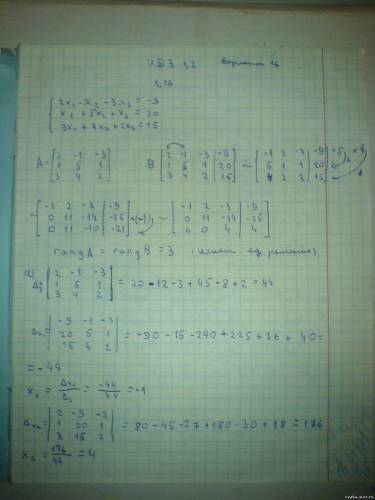 ИДЗ 1.2 Вариант 16
1.16
2x₁ - x₂ - 3x₃ = -9
x₁ + 5x₂ + x₃ = 20
3x₁ + 4x₂ + 2x₃ = 15
A = [2 -1 -3; 1 5 1; 3 4 2] B [2 -1 -3 | -9; 1 5 1 | 20; 3 4 2 | 15] ~ [-1 2 -3 | -9; 5 1 1 | 20; 4 3 2 | 15] ·5 ×4
~ [-1 2 -3 | -9; 0 11 -14 | -25; 0 11 -10 | -21] ·(-1) ~ [-1 2 -3 | -9; 0 11 -14 | -25; 0 0 4 | 4]
rang A = rang B = 3 (имеет ед. решение)
|2 -1 -3; 1 5 1; 3 4 2| = 20 - 12 - 3 + 45 - 8 + 2 = 44
Δx₁ = |-9 -1 -3; 20 5 1; 15 4 2| = -90 - 15 - 240 + 225 + 36 + 40 =
= -44
x₁ = Δx₁/Δ = -44/44 = -1
Δx₂ = |2 -9 -3; 1 20 1; 3 15 2| = 80 - 45 - 27 + 180 - 30 + 18 = 176
x₂ = 176/44 = 4